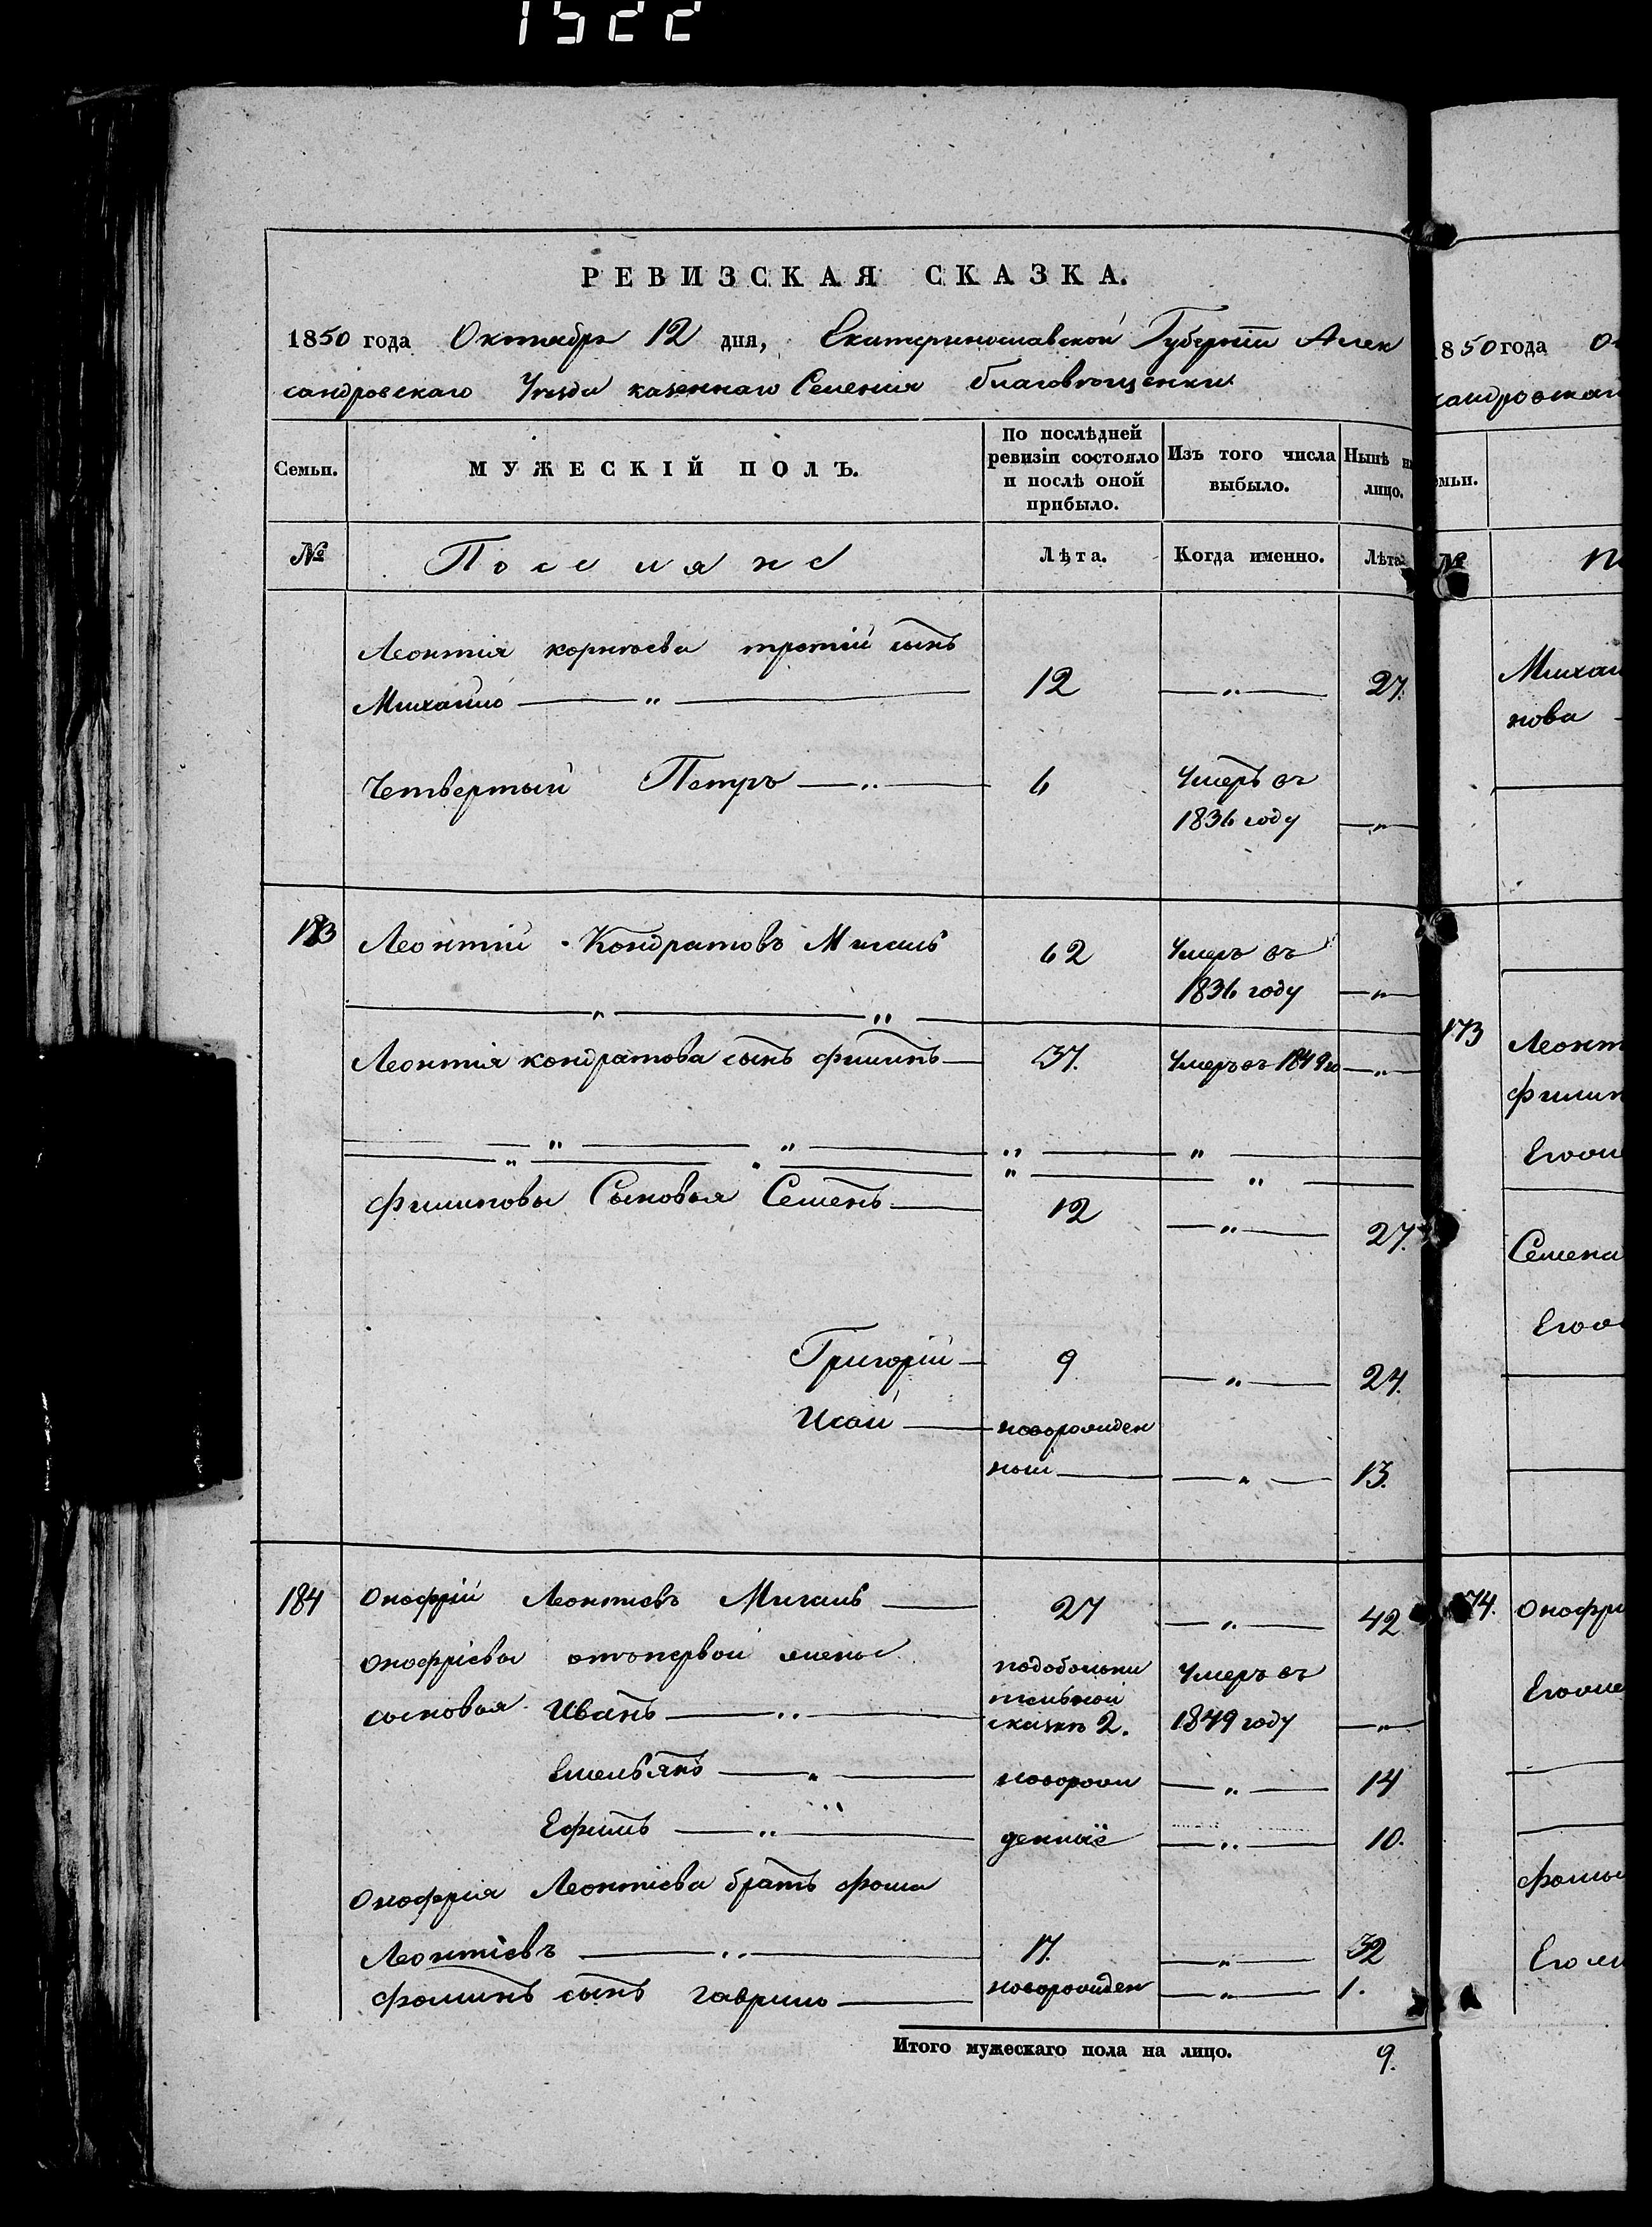 1522
РЕВИЗСКАЯ СКАЗКА.
1850 года Октября 12 дня, Екатеринославской Губерніи Алек
сандровскаго Уѣзда казеннаго Селенія благовѣщенки
Семьи.
МУЖЕСКІЙ ПОЛЪ.
По послѣдней ревизіи состояло и послѣ оной прибыло.
Изъ того числа выбыло.
Нынѣ на лицо.
№
Поселяне
Лѣта.
Когда именно.
Лѣта.
Леонтія корнѣева третій сынъ
Михайло — " — 12 — " — 27.
Четвертый Петръ — " — 6 Умеръ въ
1836 году — " —
183 Леонтій Кондратовъ Мигаль 62 Умеръ въ
1836 году — " —
Леонтія кондратова сынъ филипъ — 37. Умеръ въ 1849 го — " —
филиповы Сыновья Семенъ — 12 — " — 27.
Григорій — 9 — " — 24.
Исай — новорожден
ный — — " — 13.
184 Онофрій Леонтіевъ Мигаль — 27 — " — 42
Онофріевы отъ первой жены подополни Умеръ въ
сыновья Иванъ — " — тельной
сказкѣ 2. 1849 году — " —
Емельянъ — " — новорож — " — 14
Ефимъ — " — денные — " — 10.
Онофрія Леонтіева братъ фома
Леонтіевъ — " — 17. — " — 32
фоминъ сынъ гаврило — новорожден — " — 1.
Итого мужескаго пола на лицо. 9.
1850 года О
сандровскаг
емьи.
№
По
Михай
нова
173 Леонт
филип
Егоже
Семена
Егоо
174. Онофри
Егоже
фомы
Егоже